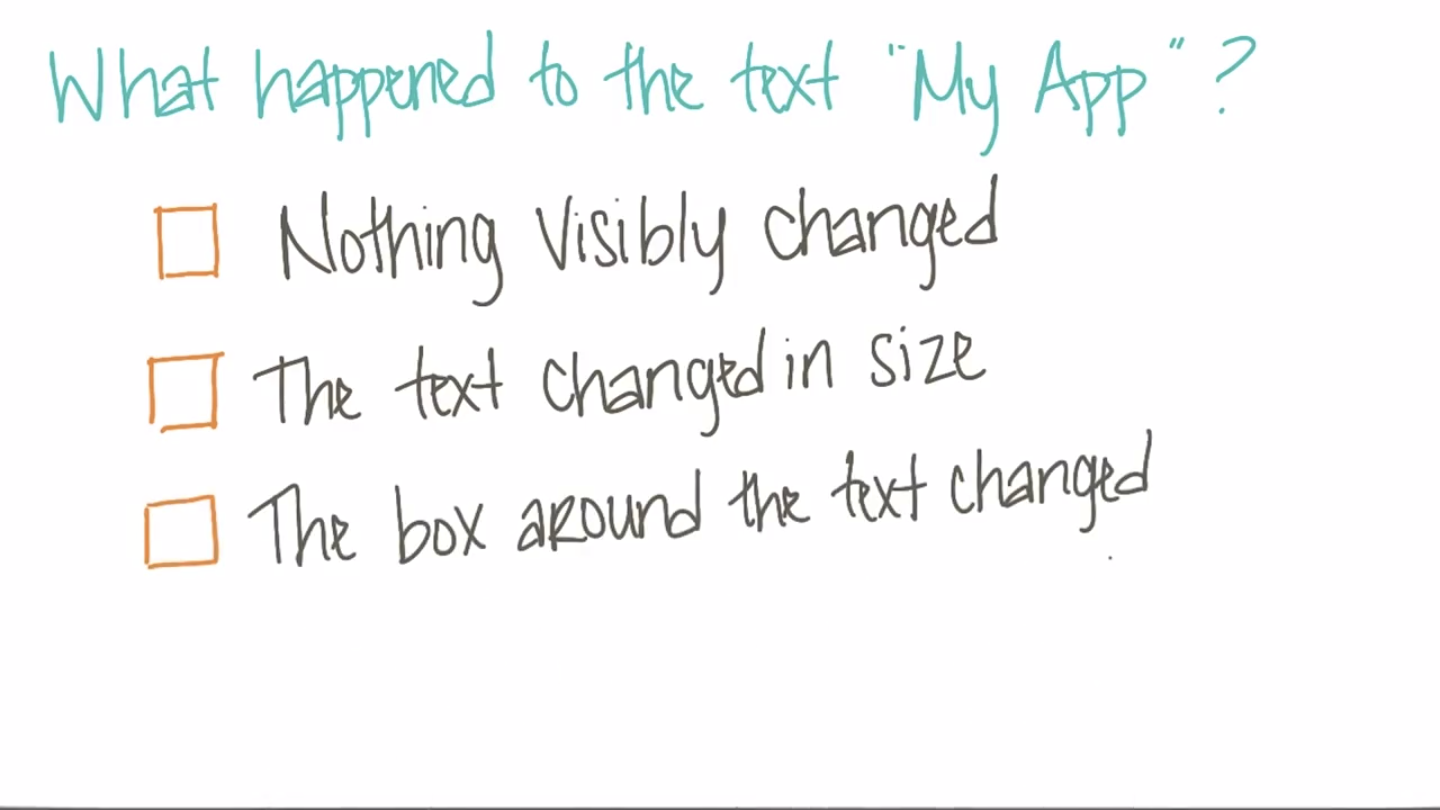 What happened to the text "My App"?
Nothing visibly changed
The text changed in size
The box around the text changed